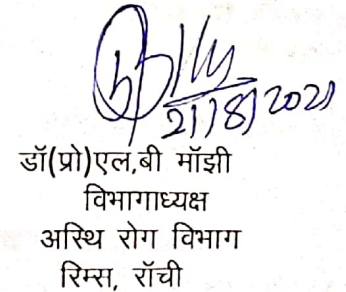 21/8/2021
डॉ(प्रो)एल,बी मॉझी
विभागाध्यक्ष
अस्थि रोग विभाग
रिम्स, रॉची